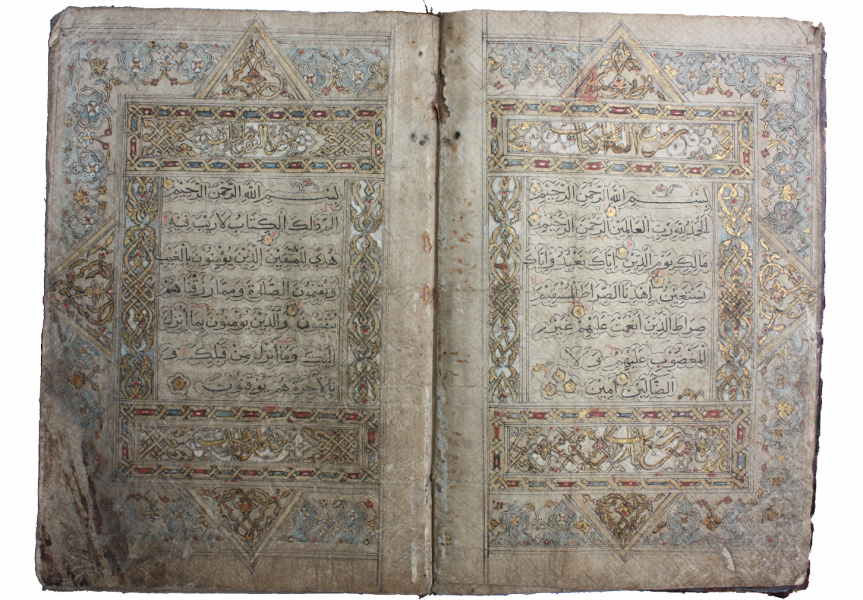 بسم الله الرحمن الرحيم
الحمد لله رب العالمين الرحمن الرحيم
مالك يوم الدين إياك نعبد وإياك
نستعين إهدنا الصراط المستقيم
صراط الذين أنعمت عليهم غير
المغضوب عليهم ولا
الضالين آمين
بسم الله الرحمن الرحيم
الم ذلك الكتاب لا ريب فيه
هدى للمتقين الذين يؤمنون بالغيب
ويقيمون الصلوة ومما رزقناهم
ينفقون والذين يؤمنون بما أنزل
إليك وما أنزل من قبلك و
بالآخرة هم يوقنون